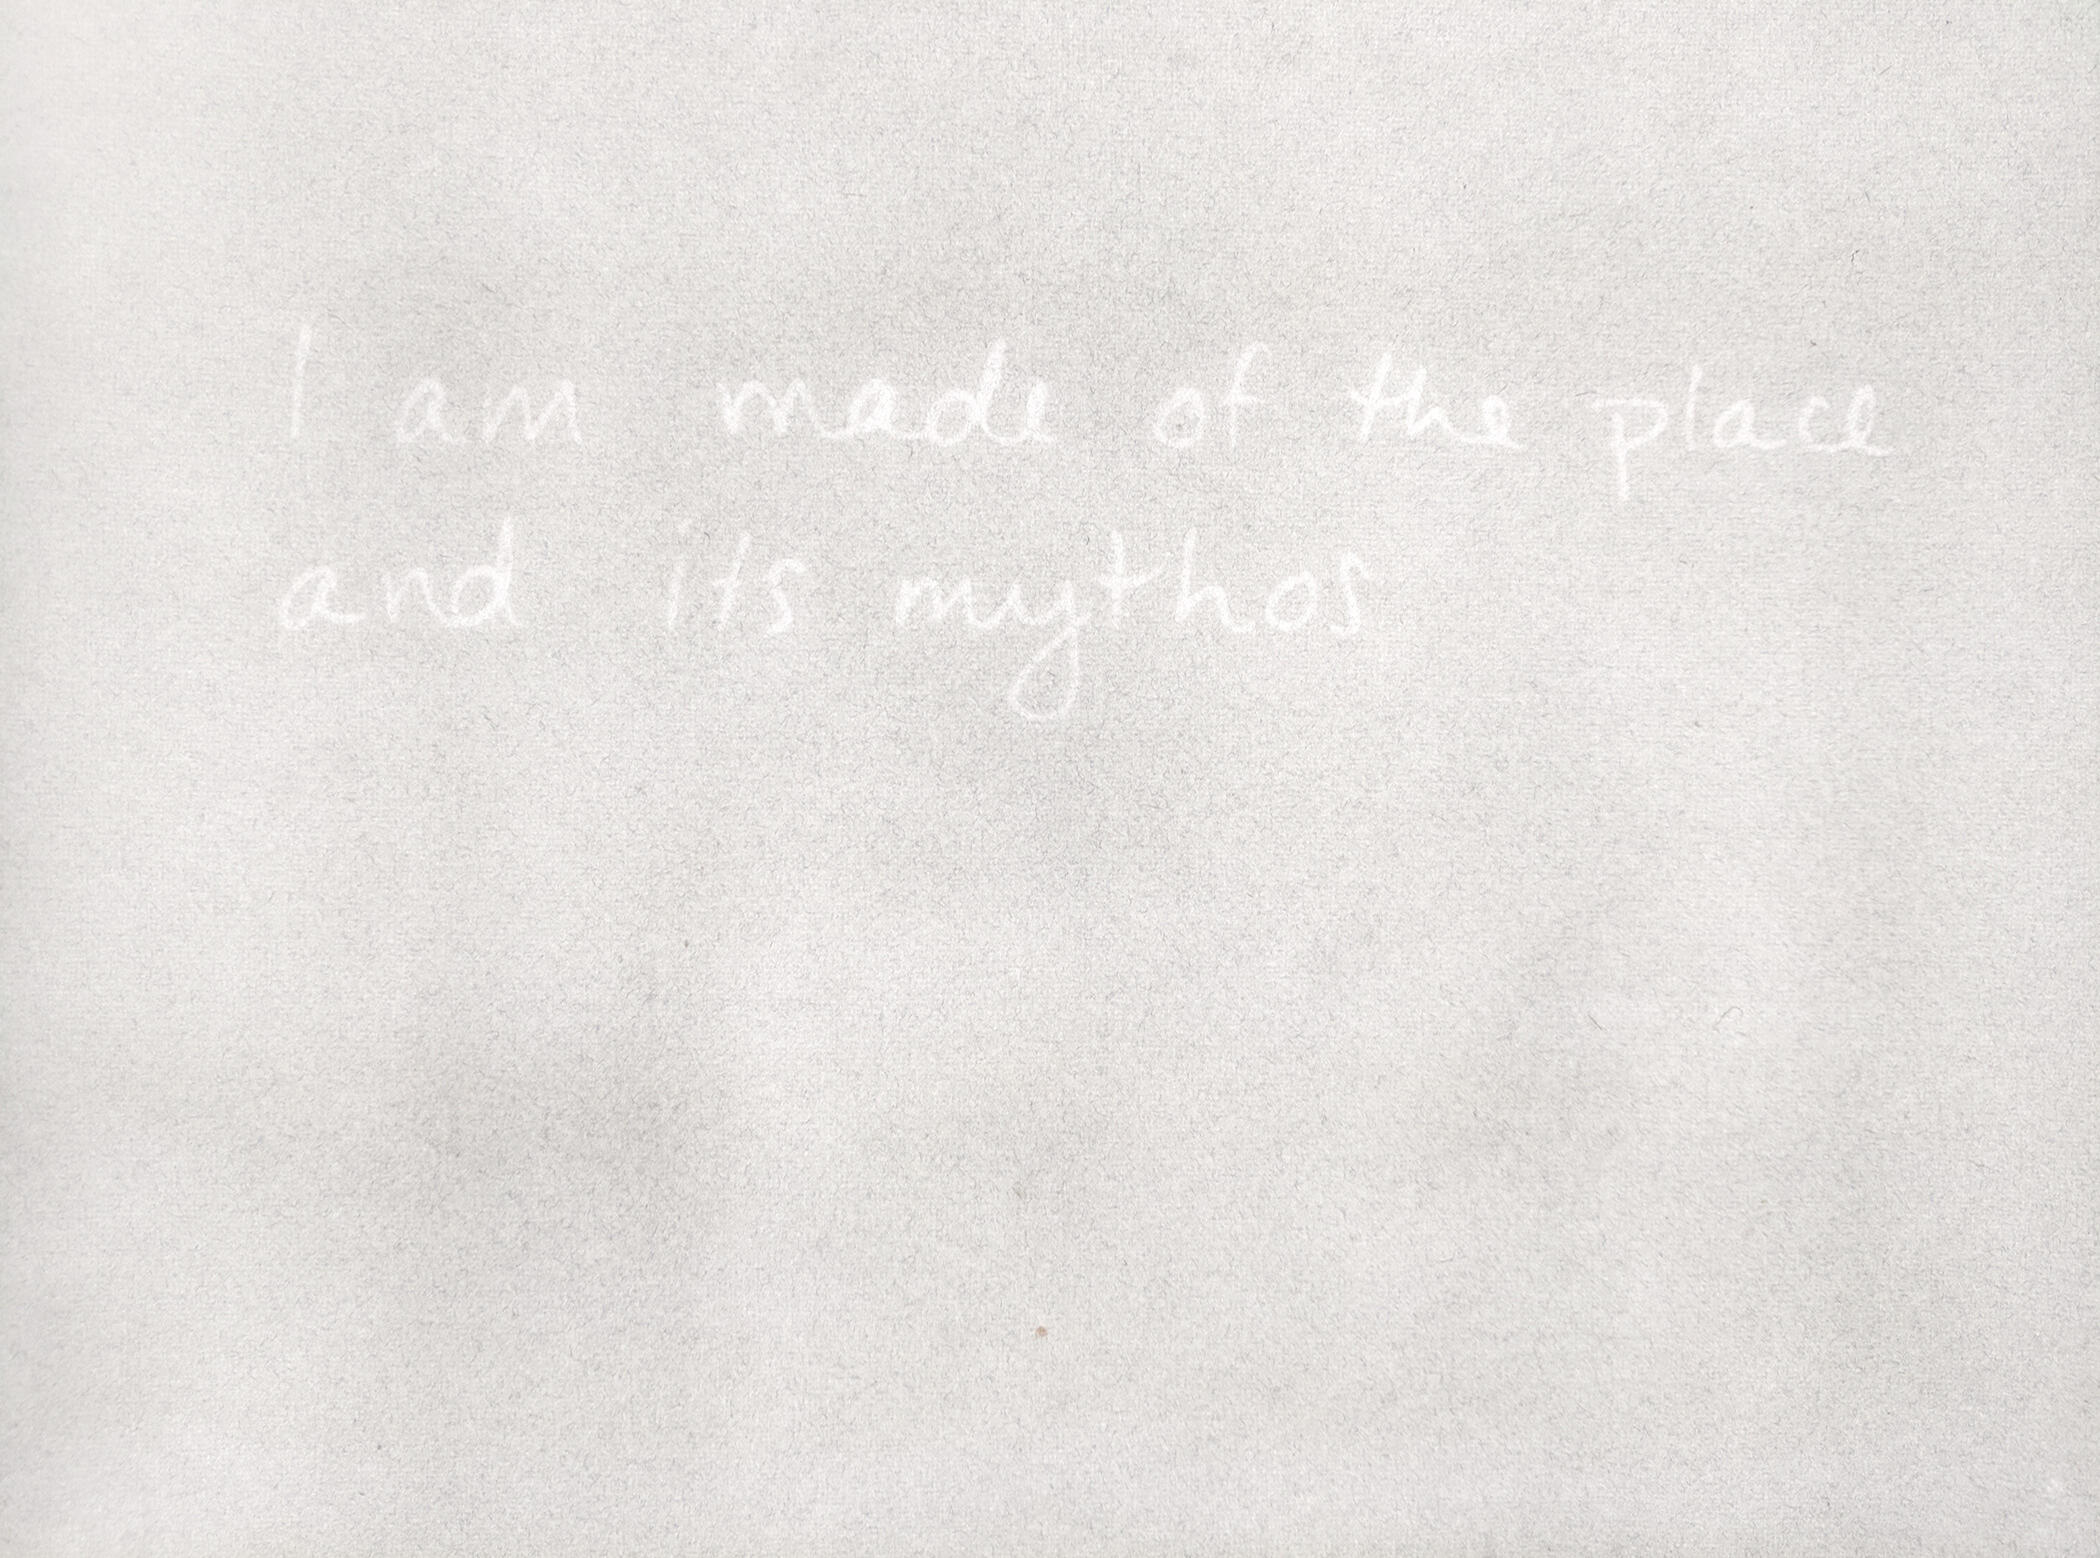 I am made of the place
and its mythos